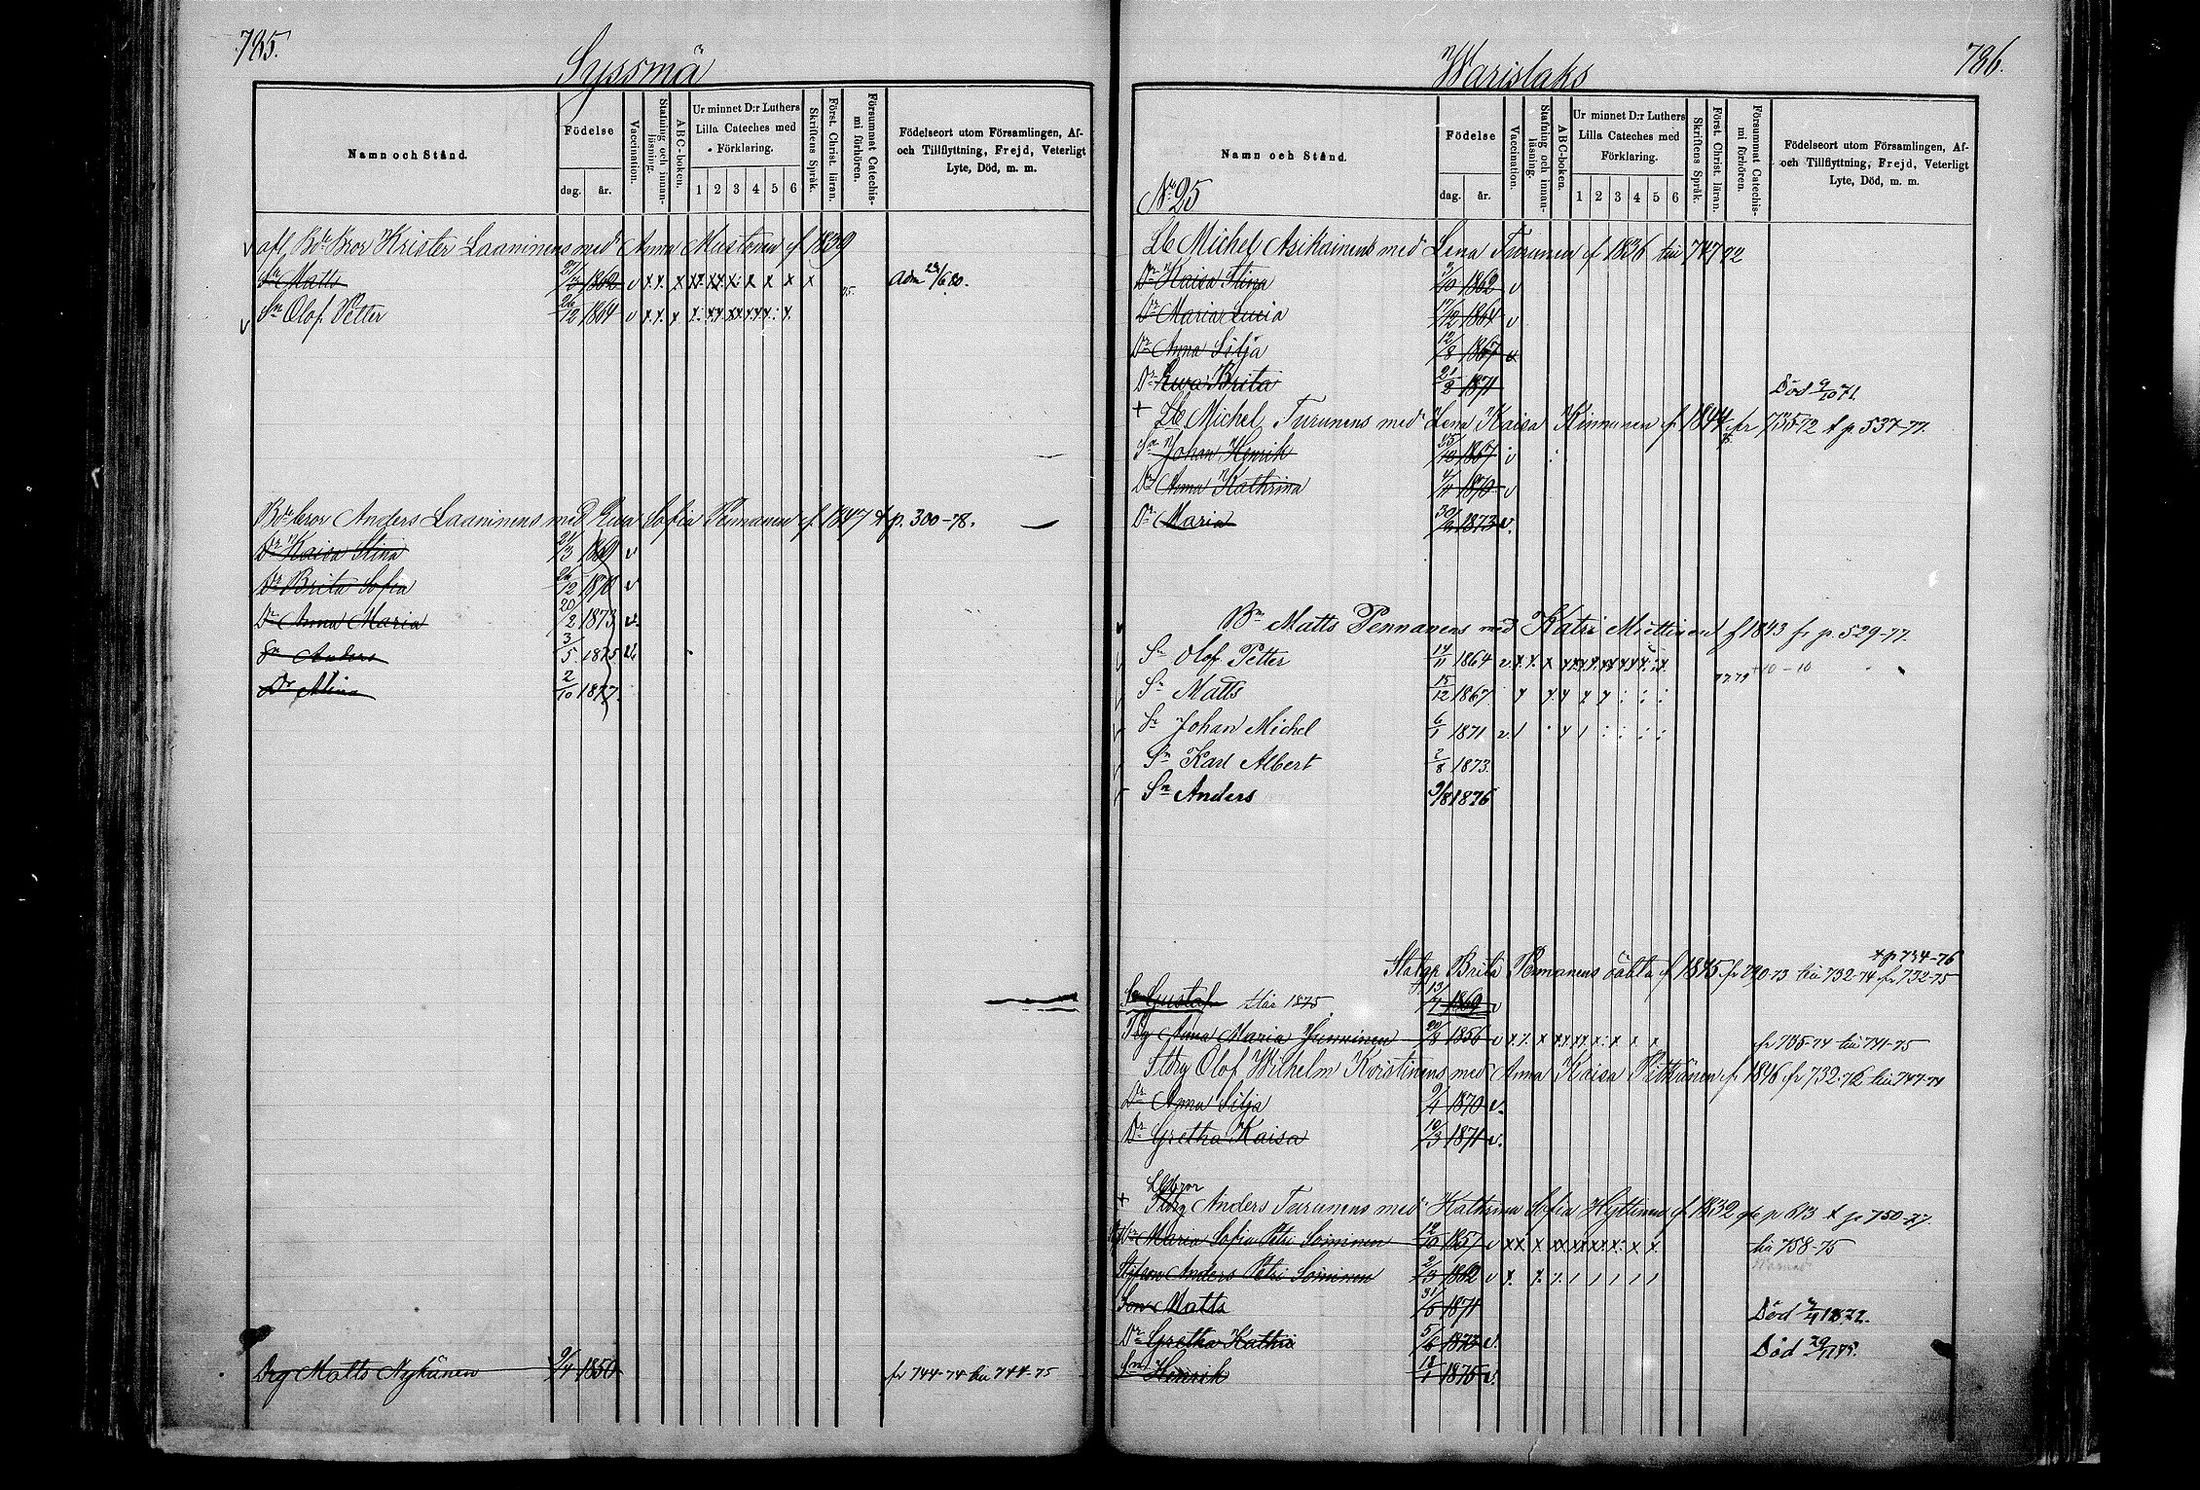 785.
Syssmä
Namn och Stånd.
Födelse
dag. år.
Vaccination.
Stafning och innan-läsning.
ABC-boken.
Ur minnet D:r Luthers Lilla Cateches med Förklaring.
1 2 3 4 5 6
Skriftens Språk.
Först. Christ. läran.
Försummat Catechis-mi förhören.
Födelseort utom Församlingen, Af- och Tillflyttning, Frejd, Veterligt Lyte, Död, m. m.
afl. Bdr Bror Krister Laaninens med Anna Mustonen f 1839
Sn Matts 1862 v x x. x x x x x x x x Adm 23/6 80.
Sn Olof Petter 26/12 1864 v x x. x
Bdr bror Anders Laaninens med Ewa Sofia Pennanen f. 1847 & p. 300-78.
Dr Kaisa Stina 24/3 1869 v
Dr Brita Sofia 26/12 1870 v
Dr Anna Maria 20/2 1873 v.
Sn Anders 3/5 1875
Dr Alina 2/10 1877.
Drg Matts Nykänen 9/4 1850 fr 744-74 till 744-75
786.
Warislaks
Namn och Stånd.
Födelse
dag. år.
Vaccination.
Stafning och innan-läsning.
ABC-boken.
Ur minnet D:r Luthers Lilla Cateches med Förklaring.
1 2 3 4 5 6
Skriftens Språk.
Först. Christ. läran.
Försummat Catechis-mi förhören.
Födelseort utom Församlingen, Af- och Tillflyttning, Frejd, Veterligt Lyte, Död, m. m.
No 25
Lb Michel Asikainens med Lena Turunen f 1836 till 747 72
Dr Kaisa Stina 3/10 1862 v
Dr Maria Lucia 17/12 1864 v
Dr Anna Silja 12/8 1867 v
Dr Ewa Brita 21/2 1871 Död 9/10 71.
+ Lb Michel Turunens med Lena Kaisa Kinnunen f 1844 fr 735-72 & p 537-77.
Sn Johan Henrik 25/12 1867 v
Dr Anna Kathrina 1870 v
Dr Maria 1873 v.
Bn Matts Pennanens med Katri Miettinen f 1843 fr p. 529-77.
Sn Olof Petter 14/11 1864 v. x x. x
Sn Matts 15/12 1867 77.79
Sn Johan Michel 6/1 1871 v.
Sn Karl Albert 2/8 1873.
Sn Anders 9/8 1876
& p 734-76
Brita Pennanens oäkta f 1845 fr 740-73 till 732-74 fr 732-75
Sn Gustaf 13/7 1869 v
Anna Maria 20/8 1856 v x x. x fr 735-74 till 741-75
Stdrg Olof Wilhelm Koistinens med Anna Kaisa Pitkänen f. 1846 fr 732-72 till 747-74
Dr Anna Silja 9/4 1870 v.
Dr Gretha Kaisa 10/3 1871 v.
Lbbror
+ Stdrg Anders Turunens med Kathrina Sofia Hyttinen f 1832 & p 750-77.
Maria Sofia Petri Soininen 12/10 1857 v x x till 758-75
Styfson Anders Petri Soininen 1862 v x.
Son Matts 31/5 1871 Död 1872.
Dr Gretha Kathri 5/6 1873 v. Död
Sn Henrik 18/1 1875 v.